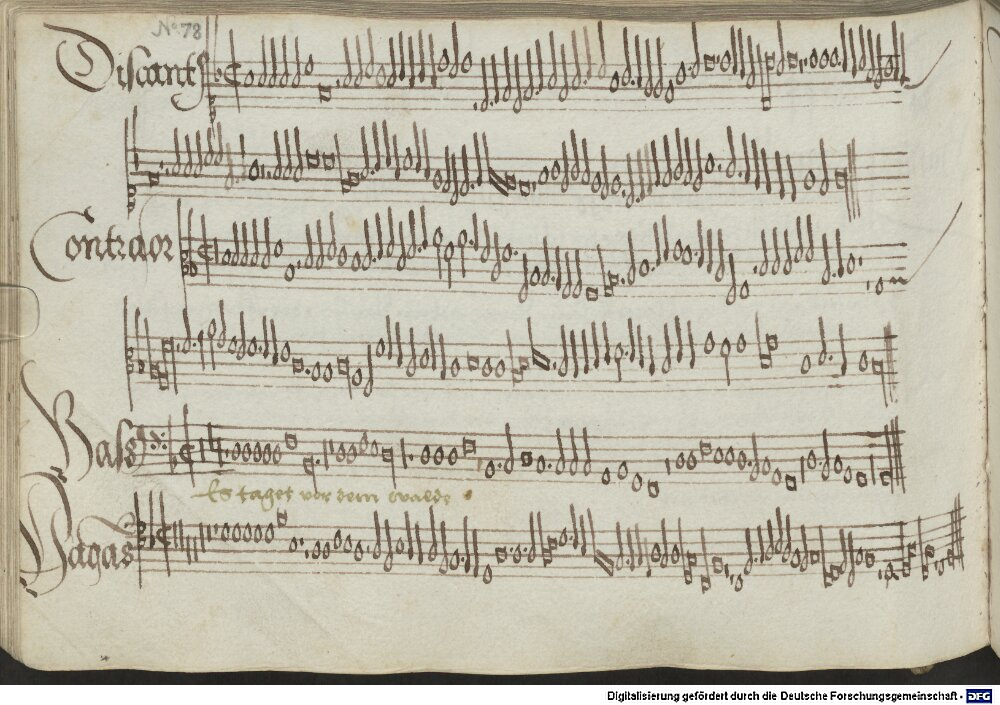 No 78
Discant
Contraor
Bass
Es taget vor dem walde
Vagas
Digitalisierung gefördert durch die Deutsche Forschungsgemeinschaft - DFG